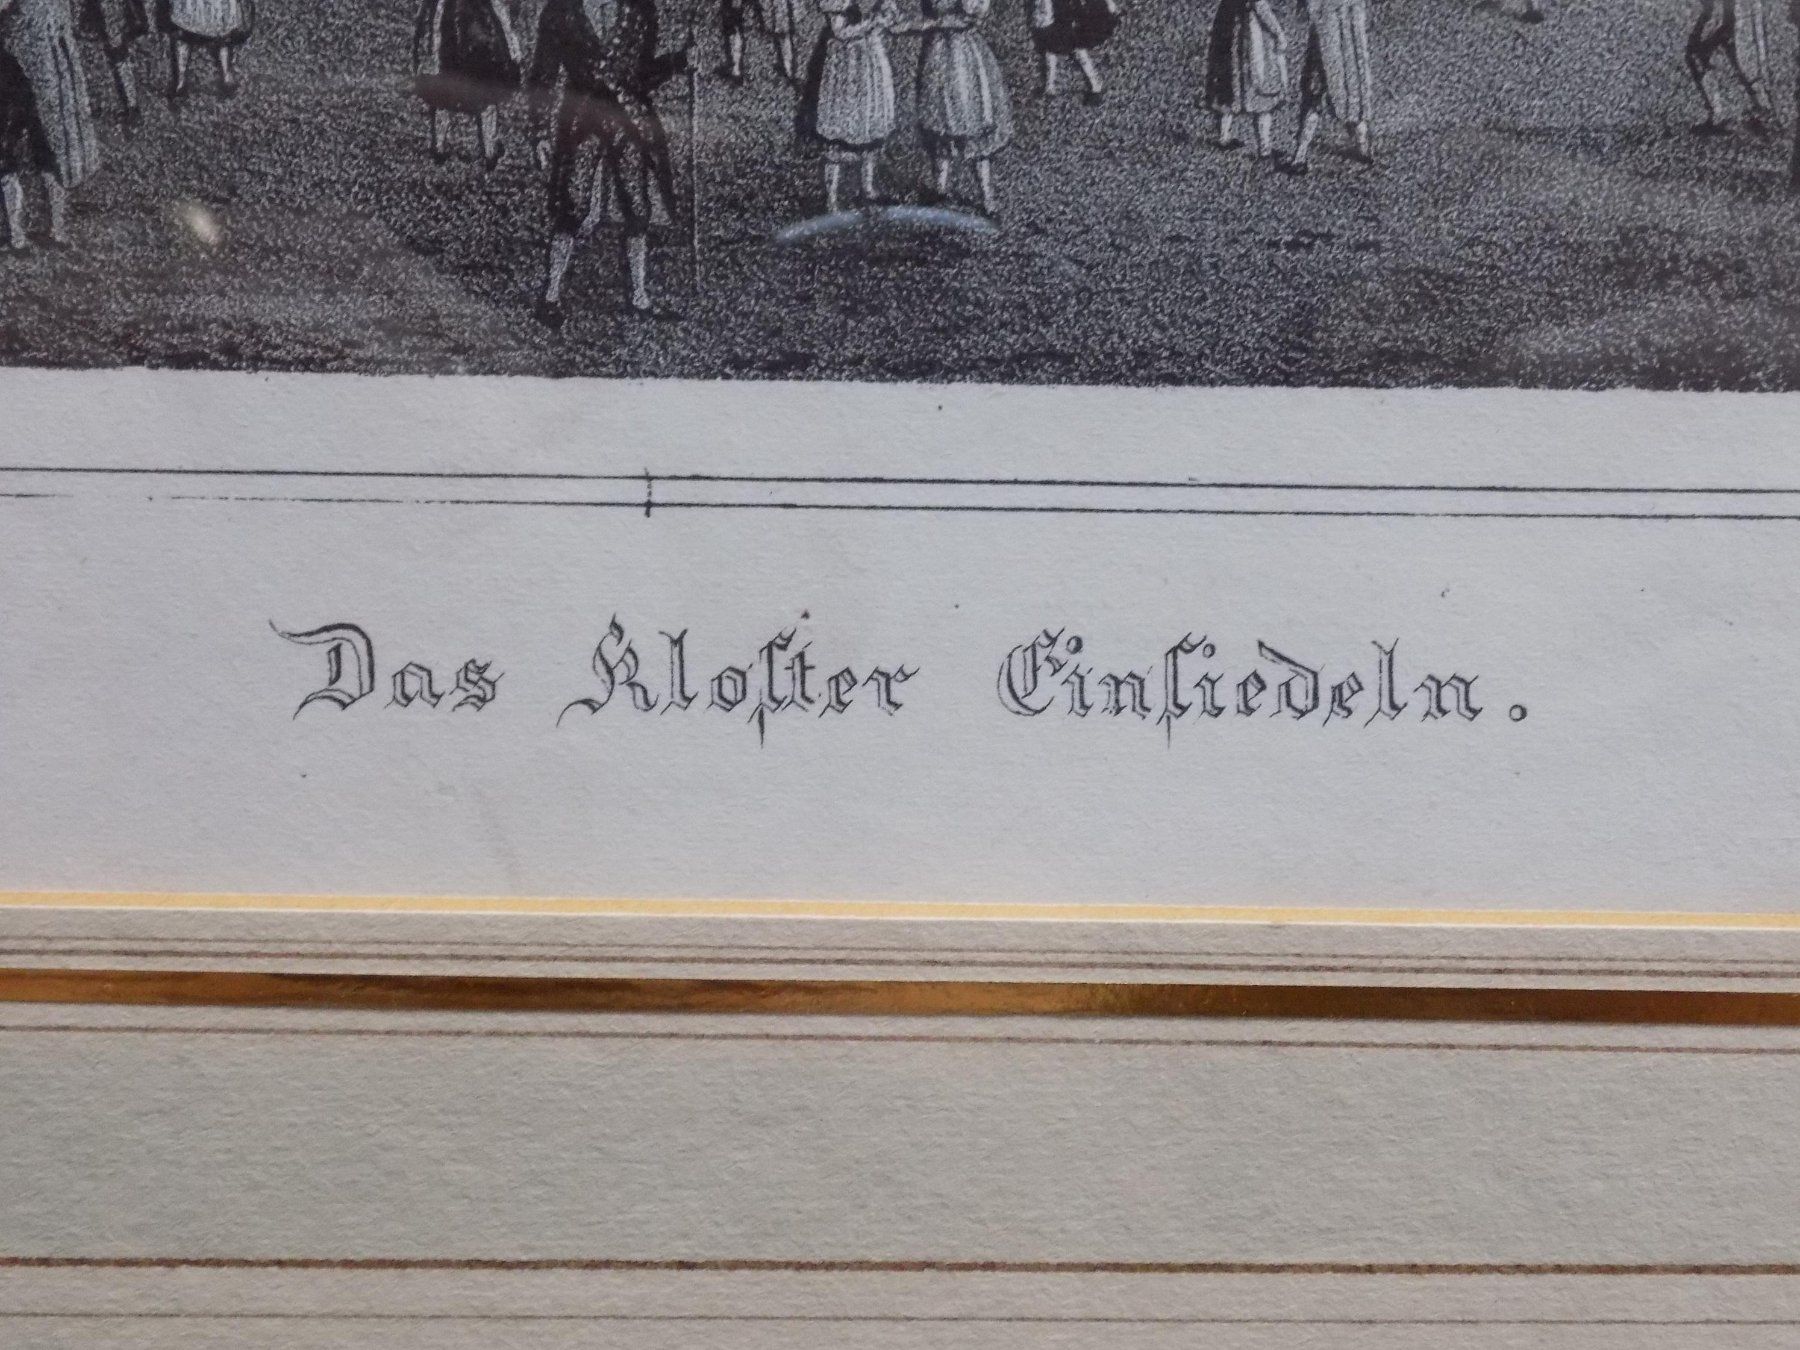 Das Kloſter Einſiedeln.